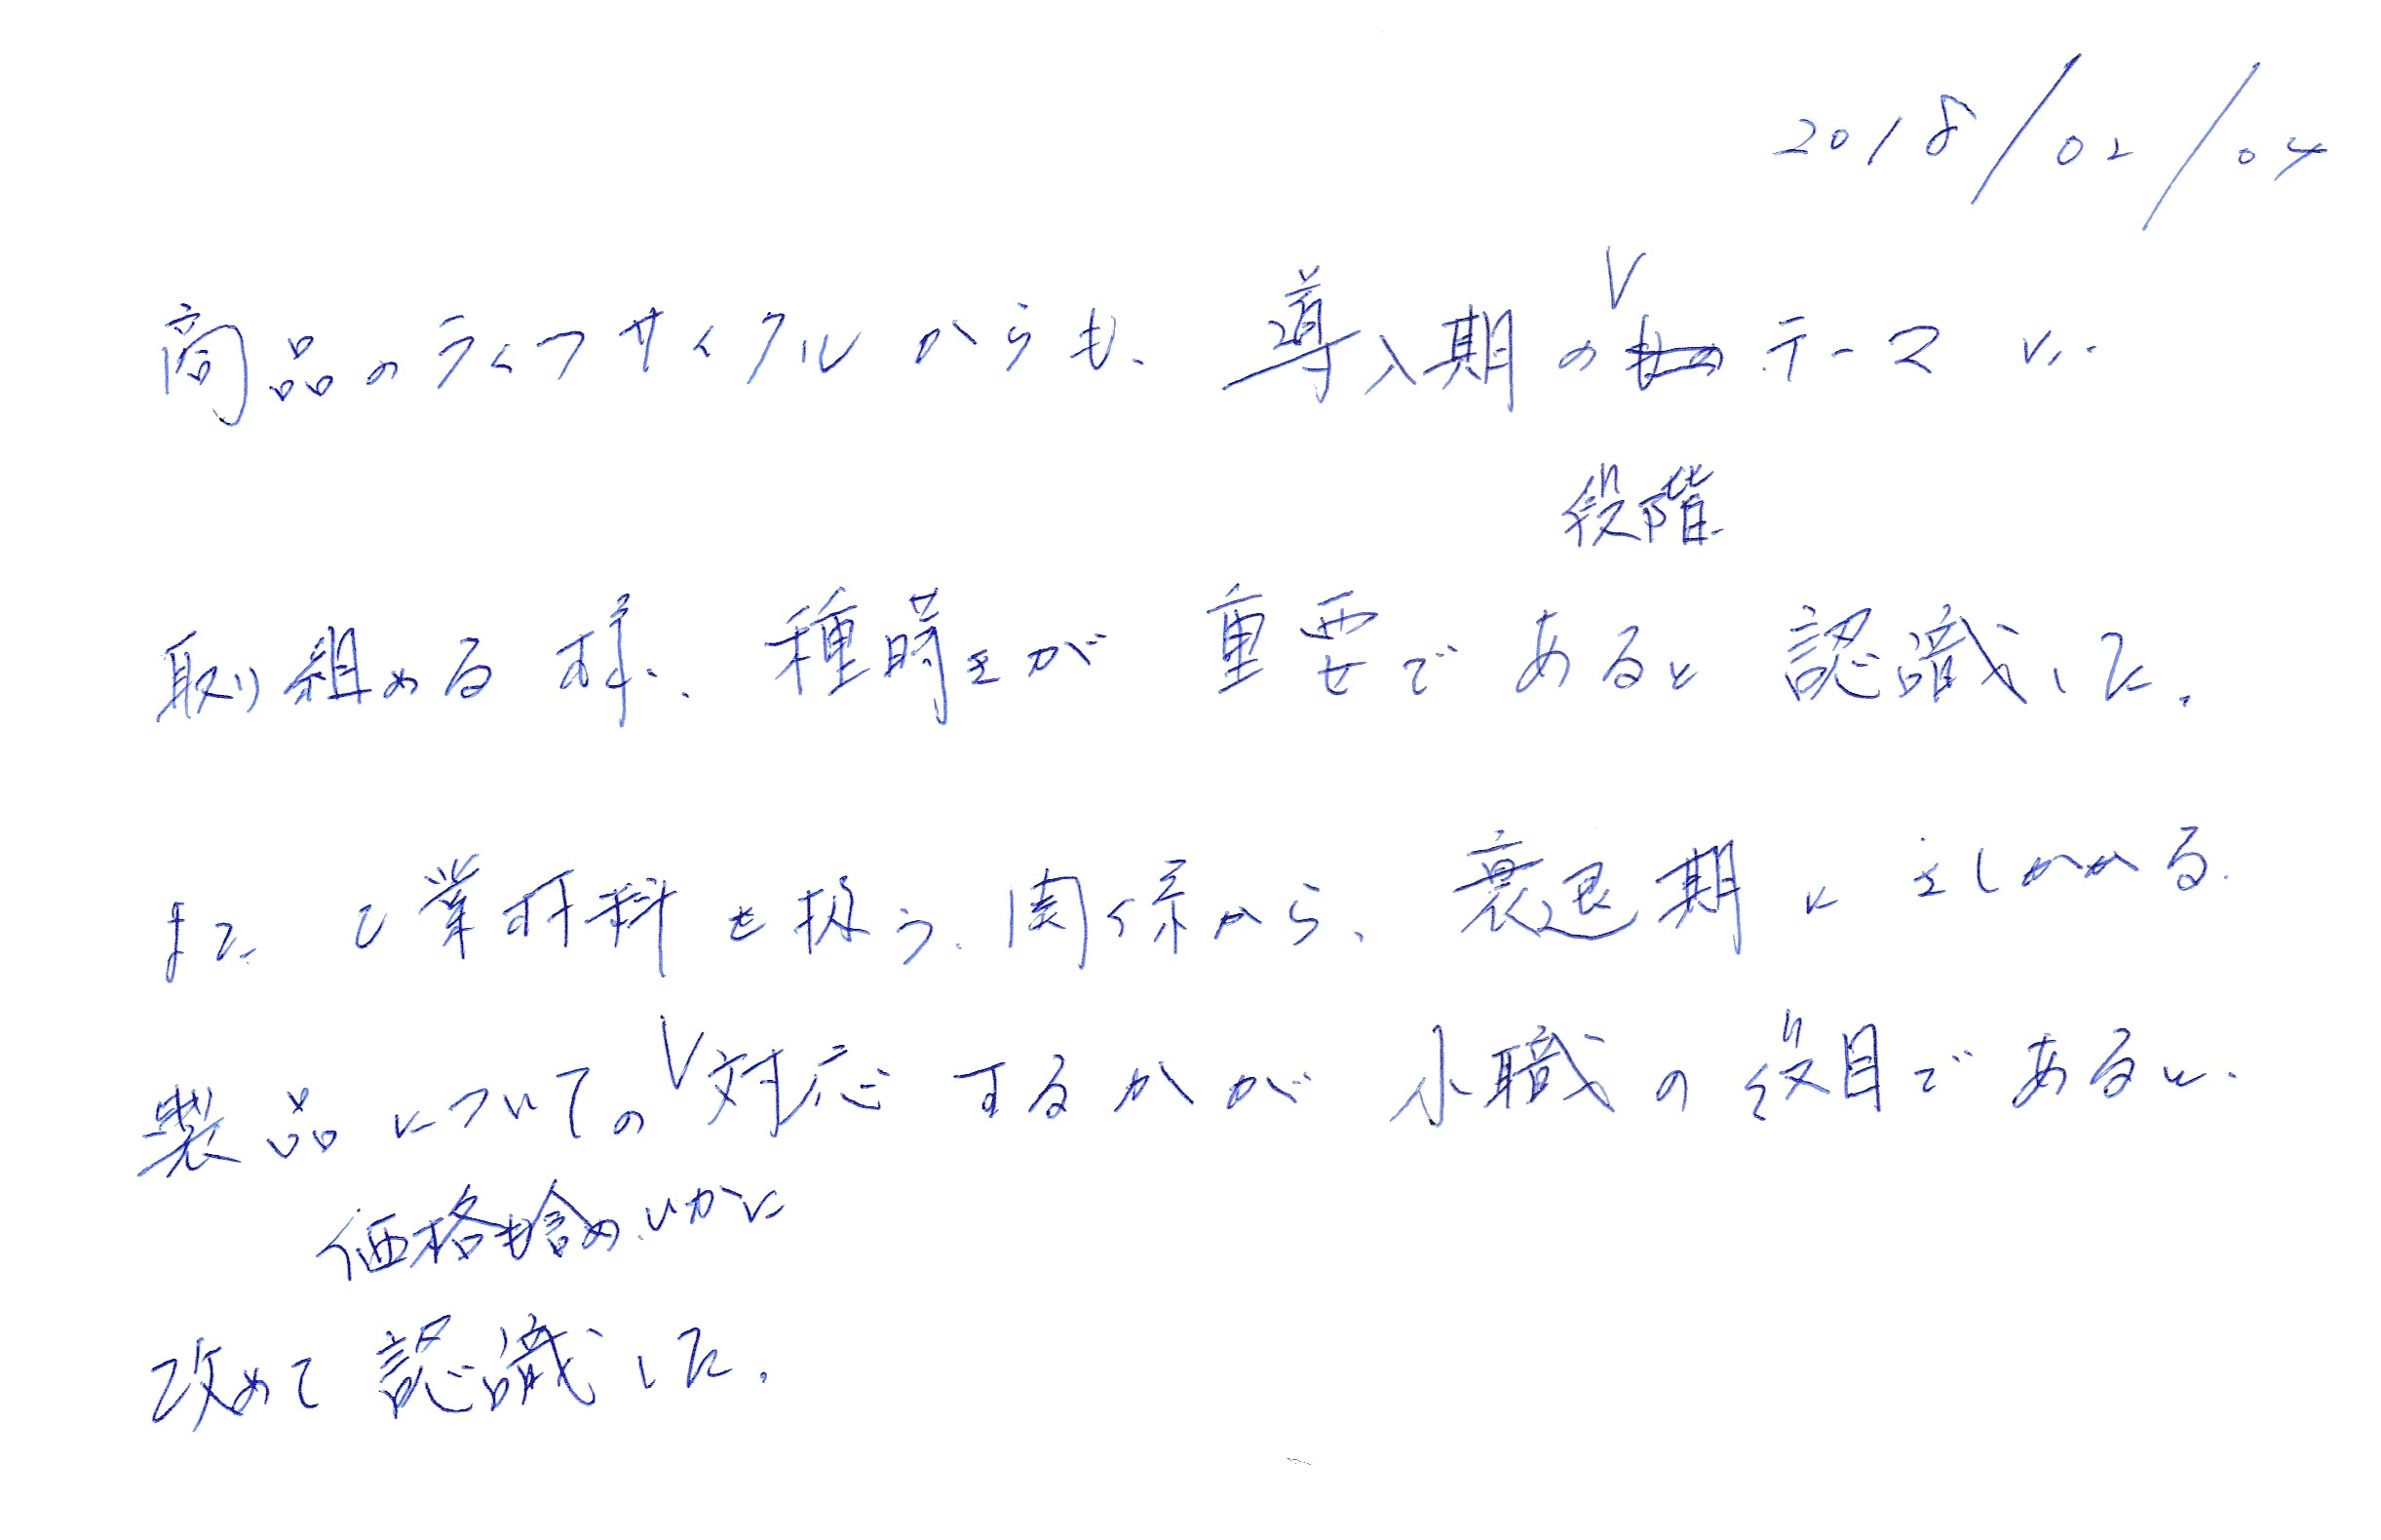 2018/02/04
商品のライフサイクルからも、導入期のテーマに
段階
取り組める様、種蒔きが重要であると認識した。
また工業材料を扱う関係から、衰退期にさしかかる
製品についての対応するかが小職の役目であると、
価格も含めいかに
改めて認識した。